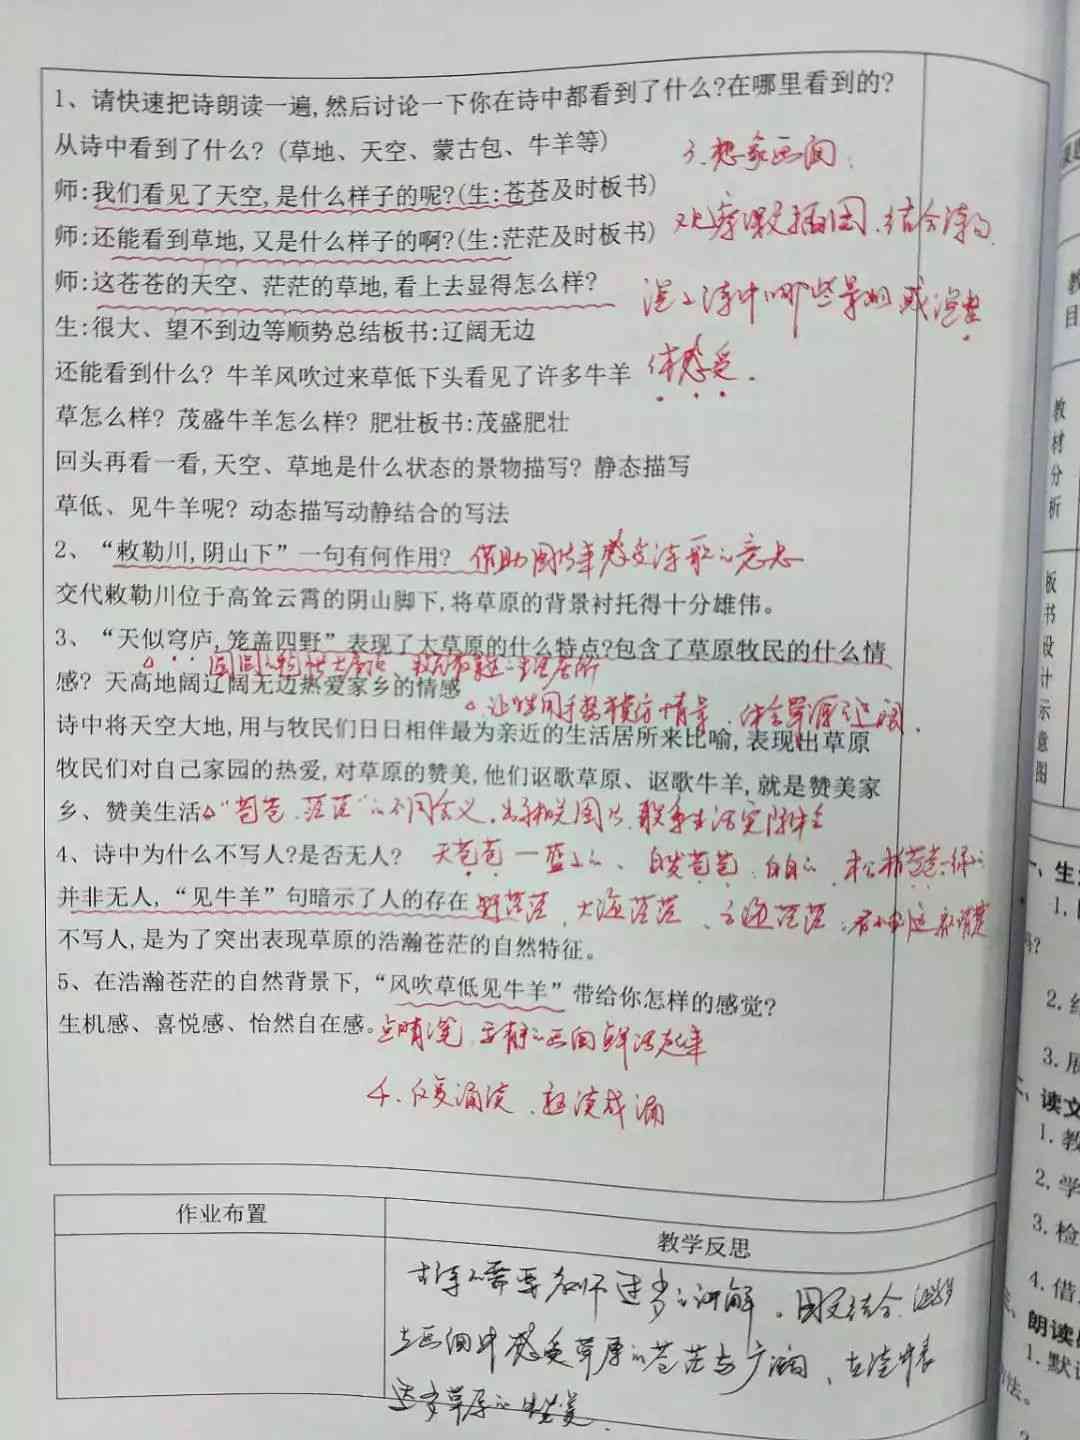 1、请快速把诗朗读一遍,然后讨论一下你在诗中都看到了什么?在哪里看到的?
从诗中看到了什么? (草地、天空、蒙古包、牛羊等)
3、想象画面:
师:我们看见了天空,是什么样子的呢?(生:苍苍及时板书)
师:还能看到草地,又是什么样子的啊?(生:茫茫及时板书)
观察课文插图、结合诗句
师:这苍苍的天空、茫茫的草地,看上去显得怎么样?
说说诗中哪些景物
生:很大、望不到边等顺势总结板书:辽阔无边
还能看到什么? 牛羊风吹过来草低下头看见了许多牛羊
体感受。
草怎么样? 茂盛牛羊怎么样? 肥壮板书:茂盛肥壮
回头再看一看,天空、草地是什么状态的景物描写? 静态描写
草低、见牛羊呢? 动态描写动静结合的写法
2、“敕勒川,阴山下”一句有何作用? 借助图片来感受诗歌的意思
交代敕勒川位于高耸云霄的阴山脚下,将草原的背景衬托得十分雄伟。
3、“天似穹庐,笼盖四野”表现了大草原的什么特点?包含了草原牧民的什么情
感? 天高地阔辽阔无边热爱家乡的情感
让学生用手势模仿情景,体会草原辽阔.
诗中将天空大地,用与牧民们日日相伴最为亲近的生活居所来比喻,表现出草原
牧民们对自己家园的热爱,对草原的赞美,他们讴歌草原、讴歌牛羊,就是赞美家
乡、赞美生活。“苍苍、茫茫”的不同含义,出示相关图片,联系生活实际体会
4、诗中为什么不写人?是否无人? 天苍苍—蓝蓝的、白发苍苍:白白的、松柏苍苍:绿的
并非无人,“见牛羊”句暗示了人的存在 野茫茫、大海茫茫、云海茫茫:看不到边 非常宽
不写人,是为了突出表现草原的浩瀚苍茫的自然特征。
5、在浩瀚苍茫的自然背景下,“风吹草低见牛羊”带给你怎样的感觉?
生机感、喜悦感、怡然自在感。点睛之笔,静的画面鲜活起来
4、反复诵读,熟读成诵
作业布置
教学反思
古诗不需要教师过多的讲解。图文结合,让学生
在画面中感受草原的苍茫与广阔,在读中表
达对草原的赞美.
教
目
教
材
分
析
板
书
设
计
示
意
图
一、生
1.
吗?
2.
3.展
二、读文
1.教
2.学
3.检
4.借
三、朗读
1.默读
方法。